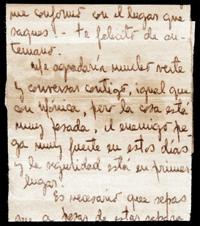 me conformo con el lugar que
saques - te felicito de an-
temano.
Me agradaría mucho verte
y conversar contigo, igual que
con Mónica, pero la cosa está
muy pesada, el enemigo pe-
ga muy fuerte en estos días
y la seguridad está en primer
lugar.
Es necesario que sepas
que a pesar de estar separa